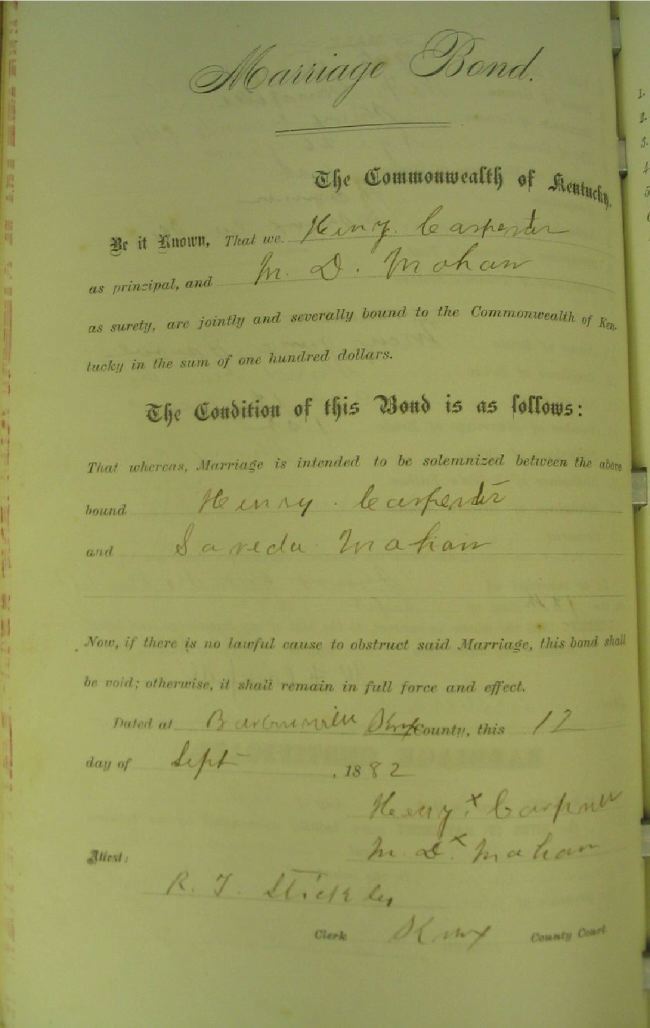 Marriage Bond.
The Commonwealth of Kentucky.
Be it Known, That we Henry Carpenter
as principal, and M. D. Mahan
as surety, are jointly and severally bound to the Commonwealth of Ken-
tucky in the sum of one hundred dollars.
The Condition of this Bond is as follows:
That whereas, Marriage is intended to be solemnized between the above
bound Henry Carpenter
and Mahan
Now, if there is no lawful cause to obstruct said Marriage, this bond shall
be void; otherwise, it shall remain in full force and effect.
Dated at Barbourville Knox County, this 12
day of Sept , 1882
Henry x Carpenter
M. D. x Mahan
Attest:
R. T.
Clerk Knox County Court
1.
2.
3.
4.
5.